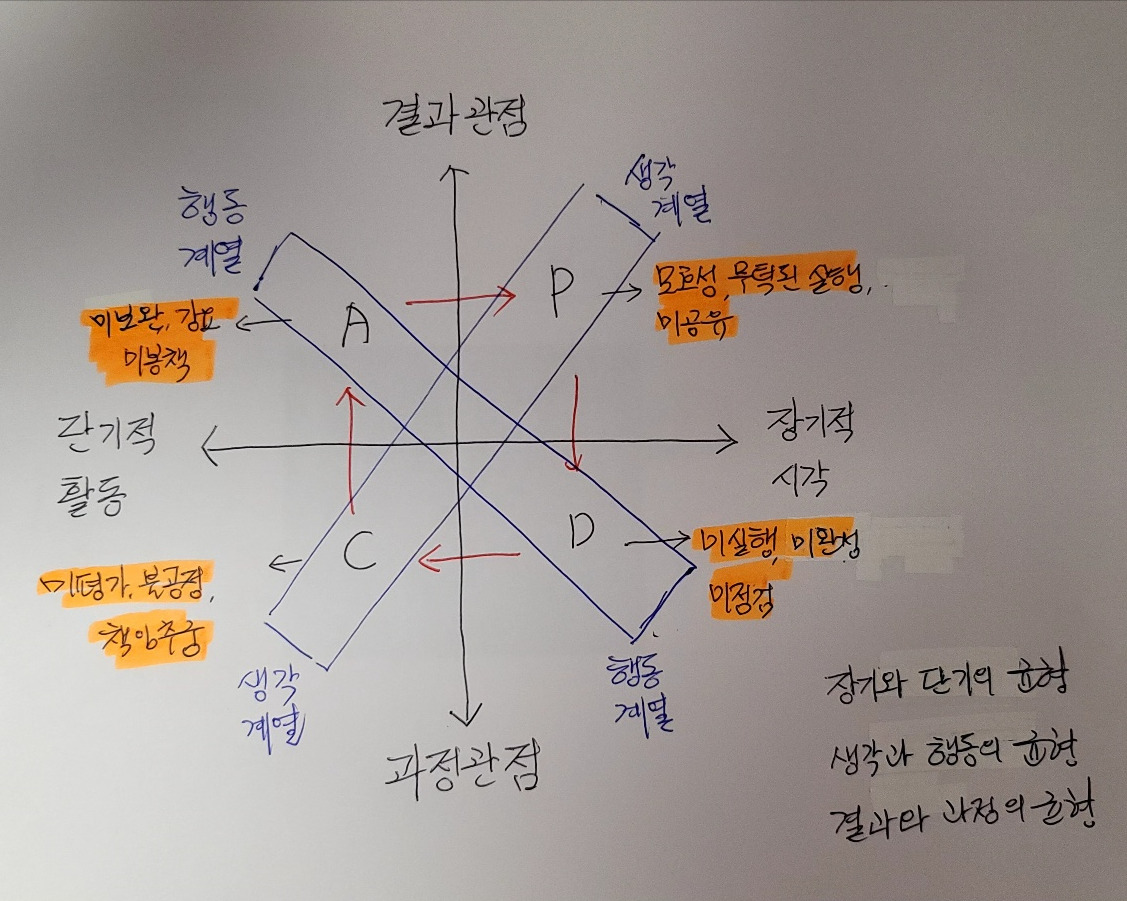 결과관점
생각
계열
행동
계열
P
모호성, 무턱된 실행,
미공유
A
미보완, 강요
미봉책
단기적
활동
장기적
시각
D
미실행, 미완성
미점검
C
미평가, 불공정,
책임추궁
생각
계열
행동
계열
과정관점
장기와 단기의 균형
생각과 행동의 균형
결과와 과정의 균형